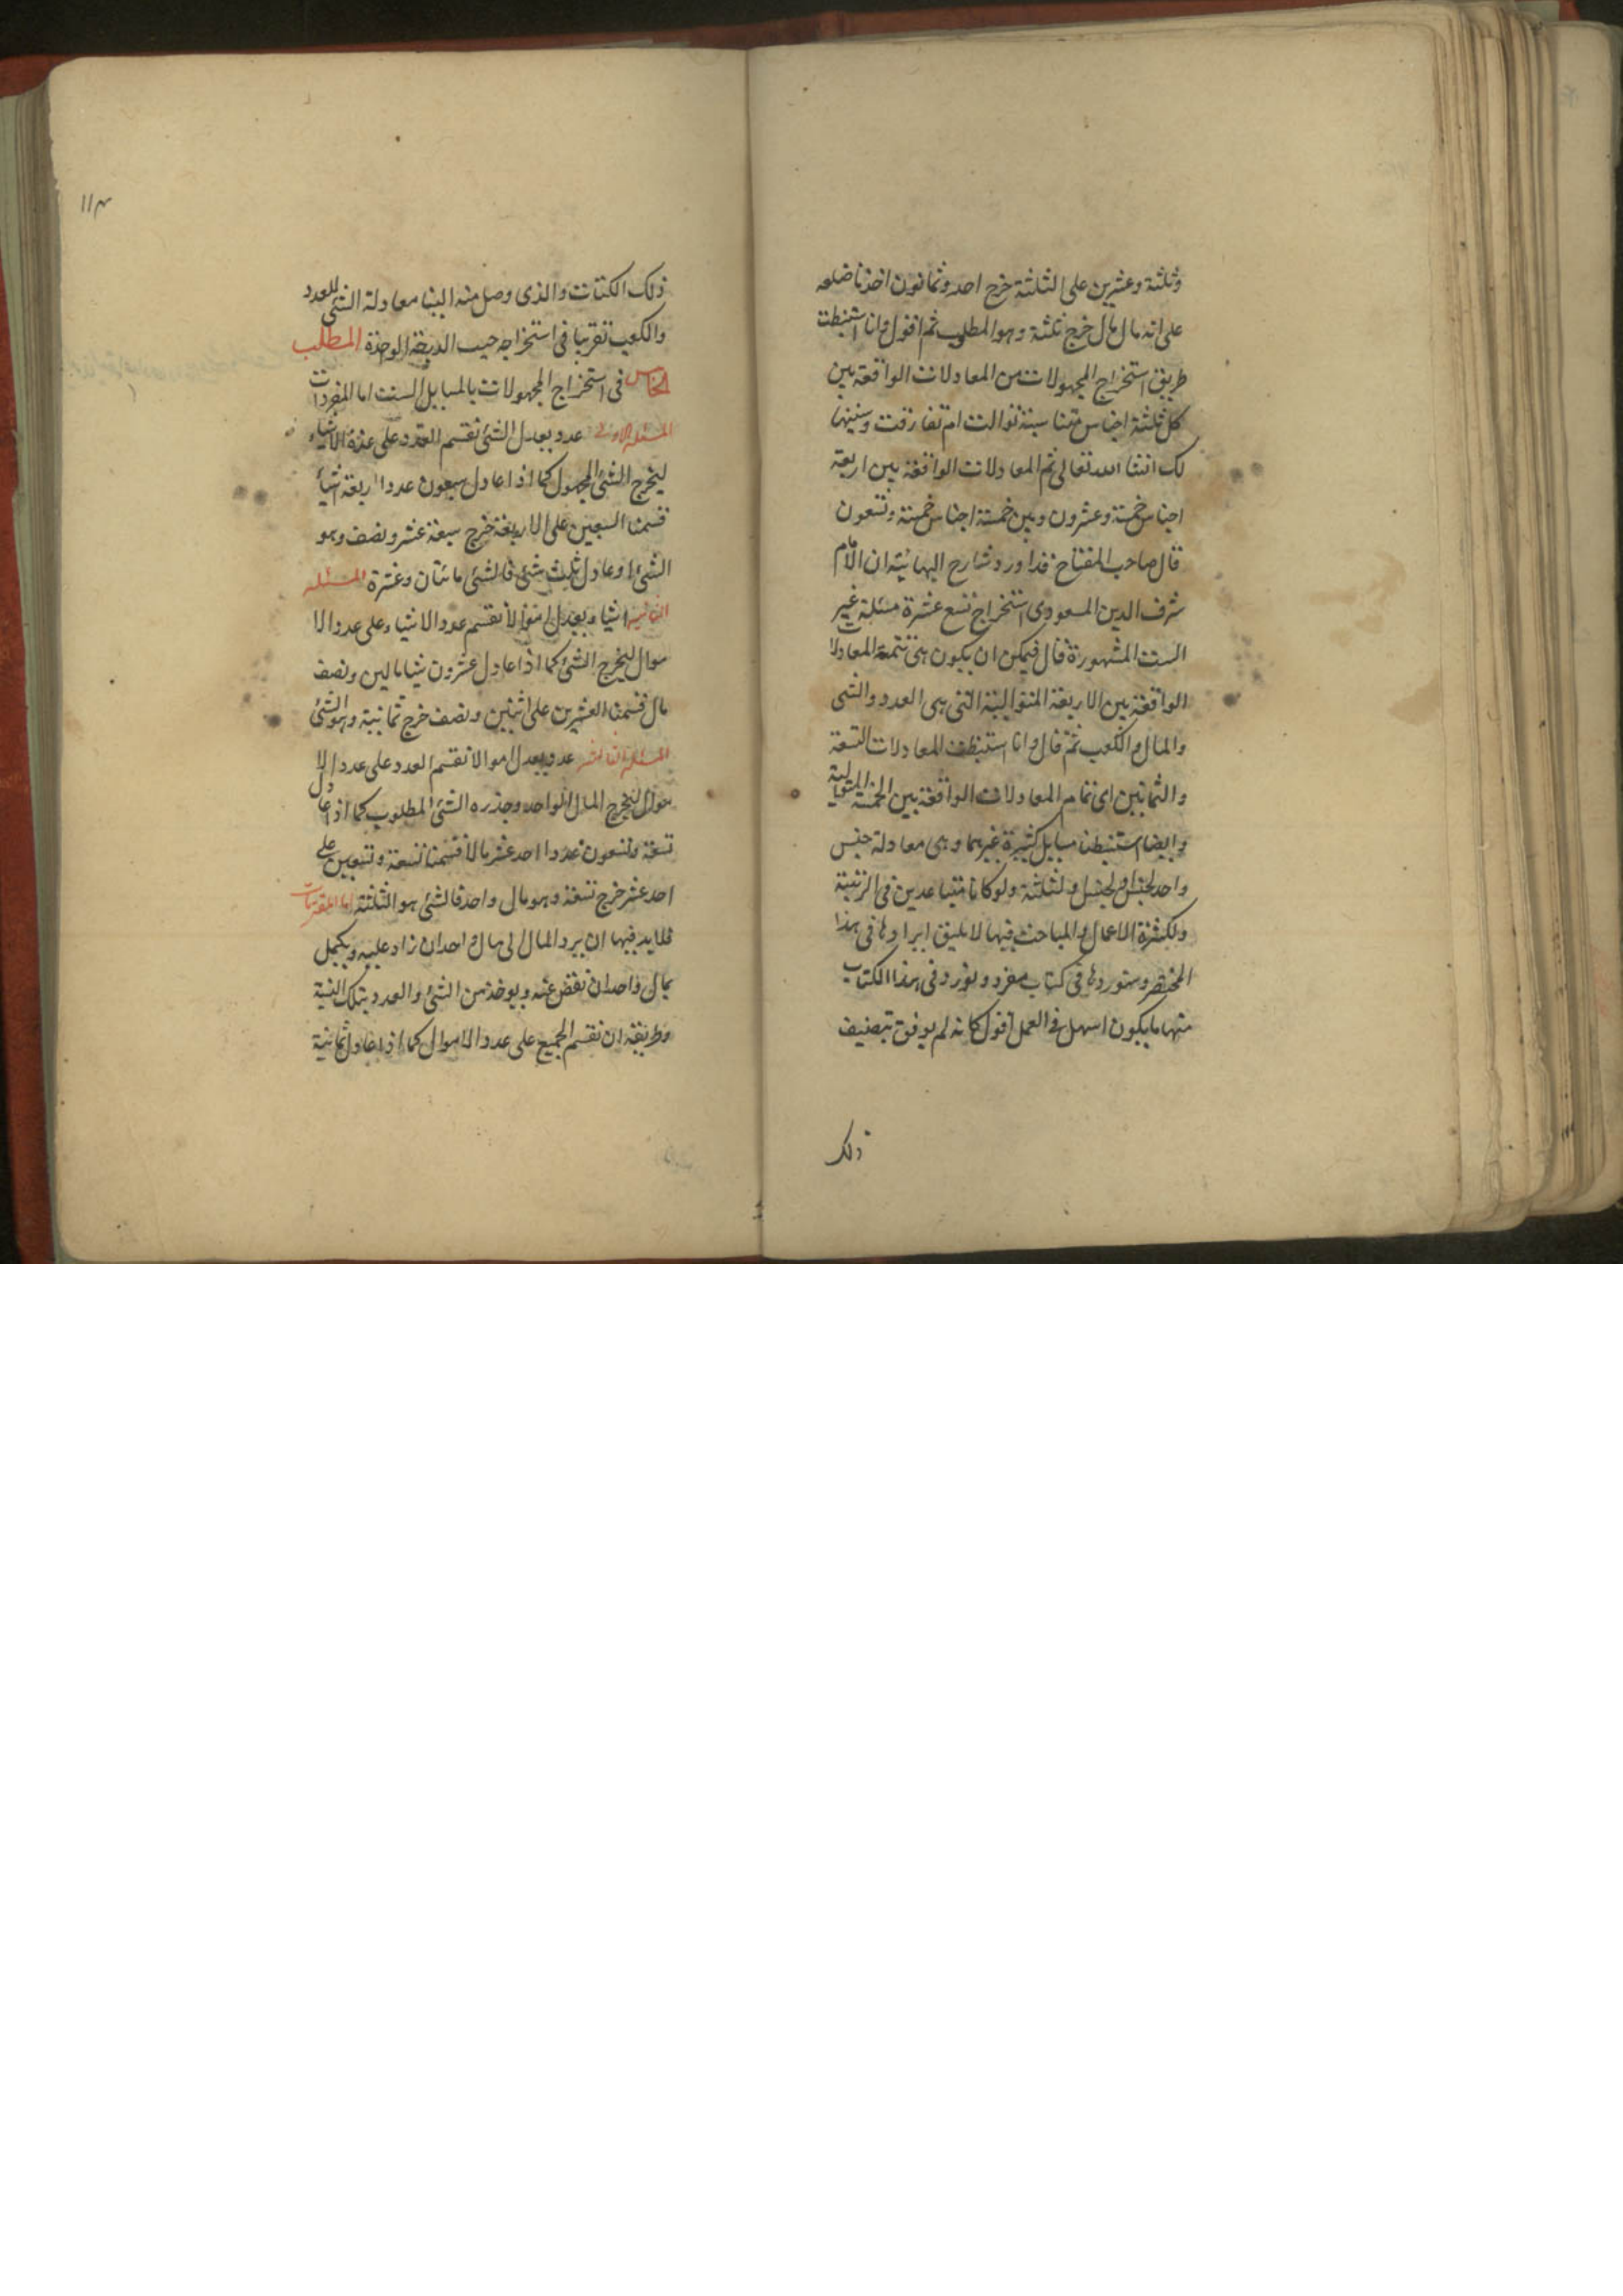 وثلثة وعشرين على الثلثة خرج احد وثمانون اخذنا ضلعه
على انه مال مال خرج ثلثة وهو المطلوب ثم اقول وانا استنبطت
طريق استخراج المجهولات من المعادلات الواقعة بين
كل ثلثة اجناس متناسبة توالت ام تفارقت وسنبينها
لك انشا الله تعالى ثم المعادلات الواقعة بين اربعة
اجناس خمسة وعشرون وبين خمسة اجناس خمسة وتسعون
قال صاحب المفتاح قد اورد شارح البهائية ان الامام
شرف الدين المسعودى استخراج تسع عشرة مسئلة غير
الست المشهورة قال فيمكن ان يكون هى تتمة المعادلات
الواقعة بين الاربعة المتوالية التى هى العدد والشى
والمال والكعب ثم قال وانا استنبطت المعادلات التسعة
والثمانين اى تمام المعادلات الواقعة بين الخمسة المتوالية
وايضا استنبطنا مسايل كثيرة غيرهما وهى معادلة جنس
واحد لجنس او لجنسين ولثلثة ولو كانا متباعدين فى الرتبة
ولكثرة الاعمال والمباحث فيها لا يليق ايرادها فى هذا
المختصر وسنوردها فى كتاب مفرد ونورد فى هذا الكتاب
منها ما يكون اسهل فى العمل اقول كانه لم يوفق بتصنيف
ذلك
١١٣
ذلك الكتاب والذى وصل منه الينا معادلة الشى للعدد
والكعب تقريبا فى استخراجه جيب الدرجة الواحدة المطلب
الخامس فى استخراج المجهولات بالمسايل الست اما المفردات
المسئلة الاولى عدد يعدل الشئ نقسم العدد على عدة الاشياء
ليخرج الشئ المجهول كما اذا عادل سبعون عددا اربعة اشيأ
قسمنا السبعين على الاربعة خرج سبعة عشر ونصف وهو
الشئ او عادل ثلث شئ فالشئ مائتان وعشرة المسئلة
الثانية اشياء يعدل اموالا نقسم عدد الاشياء على عدد الا
موال ليخرج الشئ كما اذا عادل عشرون شيا مالين ونصف
مال قسمنا العشرين على اثنين ونصف خرج ثمانية وهو الشئ
المسئلة الثالثة عدد يعدل اموالا نقسم العدد على عدد الا
موال ليخرج المال الواحد وجذره الشئ المطلوب كما اذا عادل
تسعة وتسعون عددا احد عشر مالا قسمنا تسعة وتسعين على
احد عشر خرج تسعة وهو مال واحد فالشئ هو الثلثة اما المقترنات
فلابد فيها ان يرد المال الى مال واحد ان زاد عليه ويكمل
بمال واحد ان نقص عنه ويوخذ من الشئ والعدد بتلك النسبة
وطريقة ان نقسم الجميع على عدد الاموال كما اذا عادل ثمانية